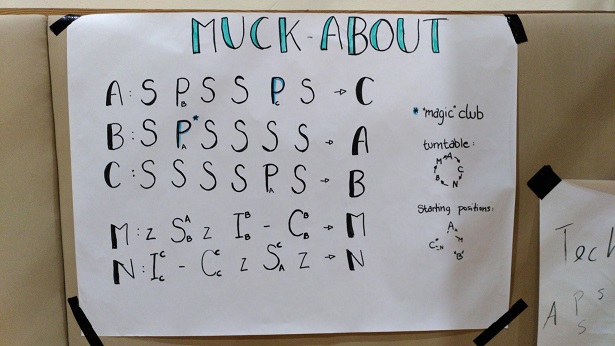 MUCK-ABOUT
A: S P_B S S P_C S → C
B: S P_A* S S S S → A
C: S S S S P_A S → B
M: z S^A_B z I^B_B - C^B_B → M
N: I^C_C - C^C_C z S^C_A z → N
* "magic" club
turntable:
M A
B C
N
Starting positions:
A
M
C
"B"
Tech
A P S
S